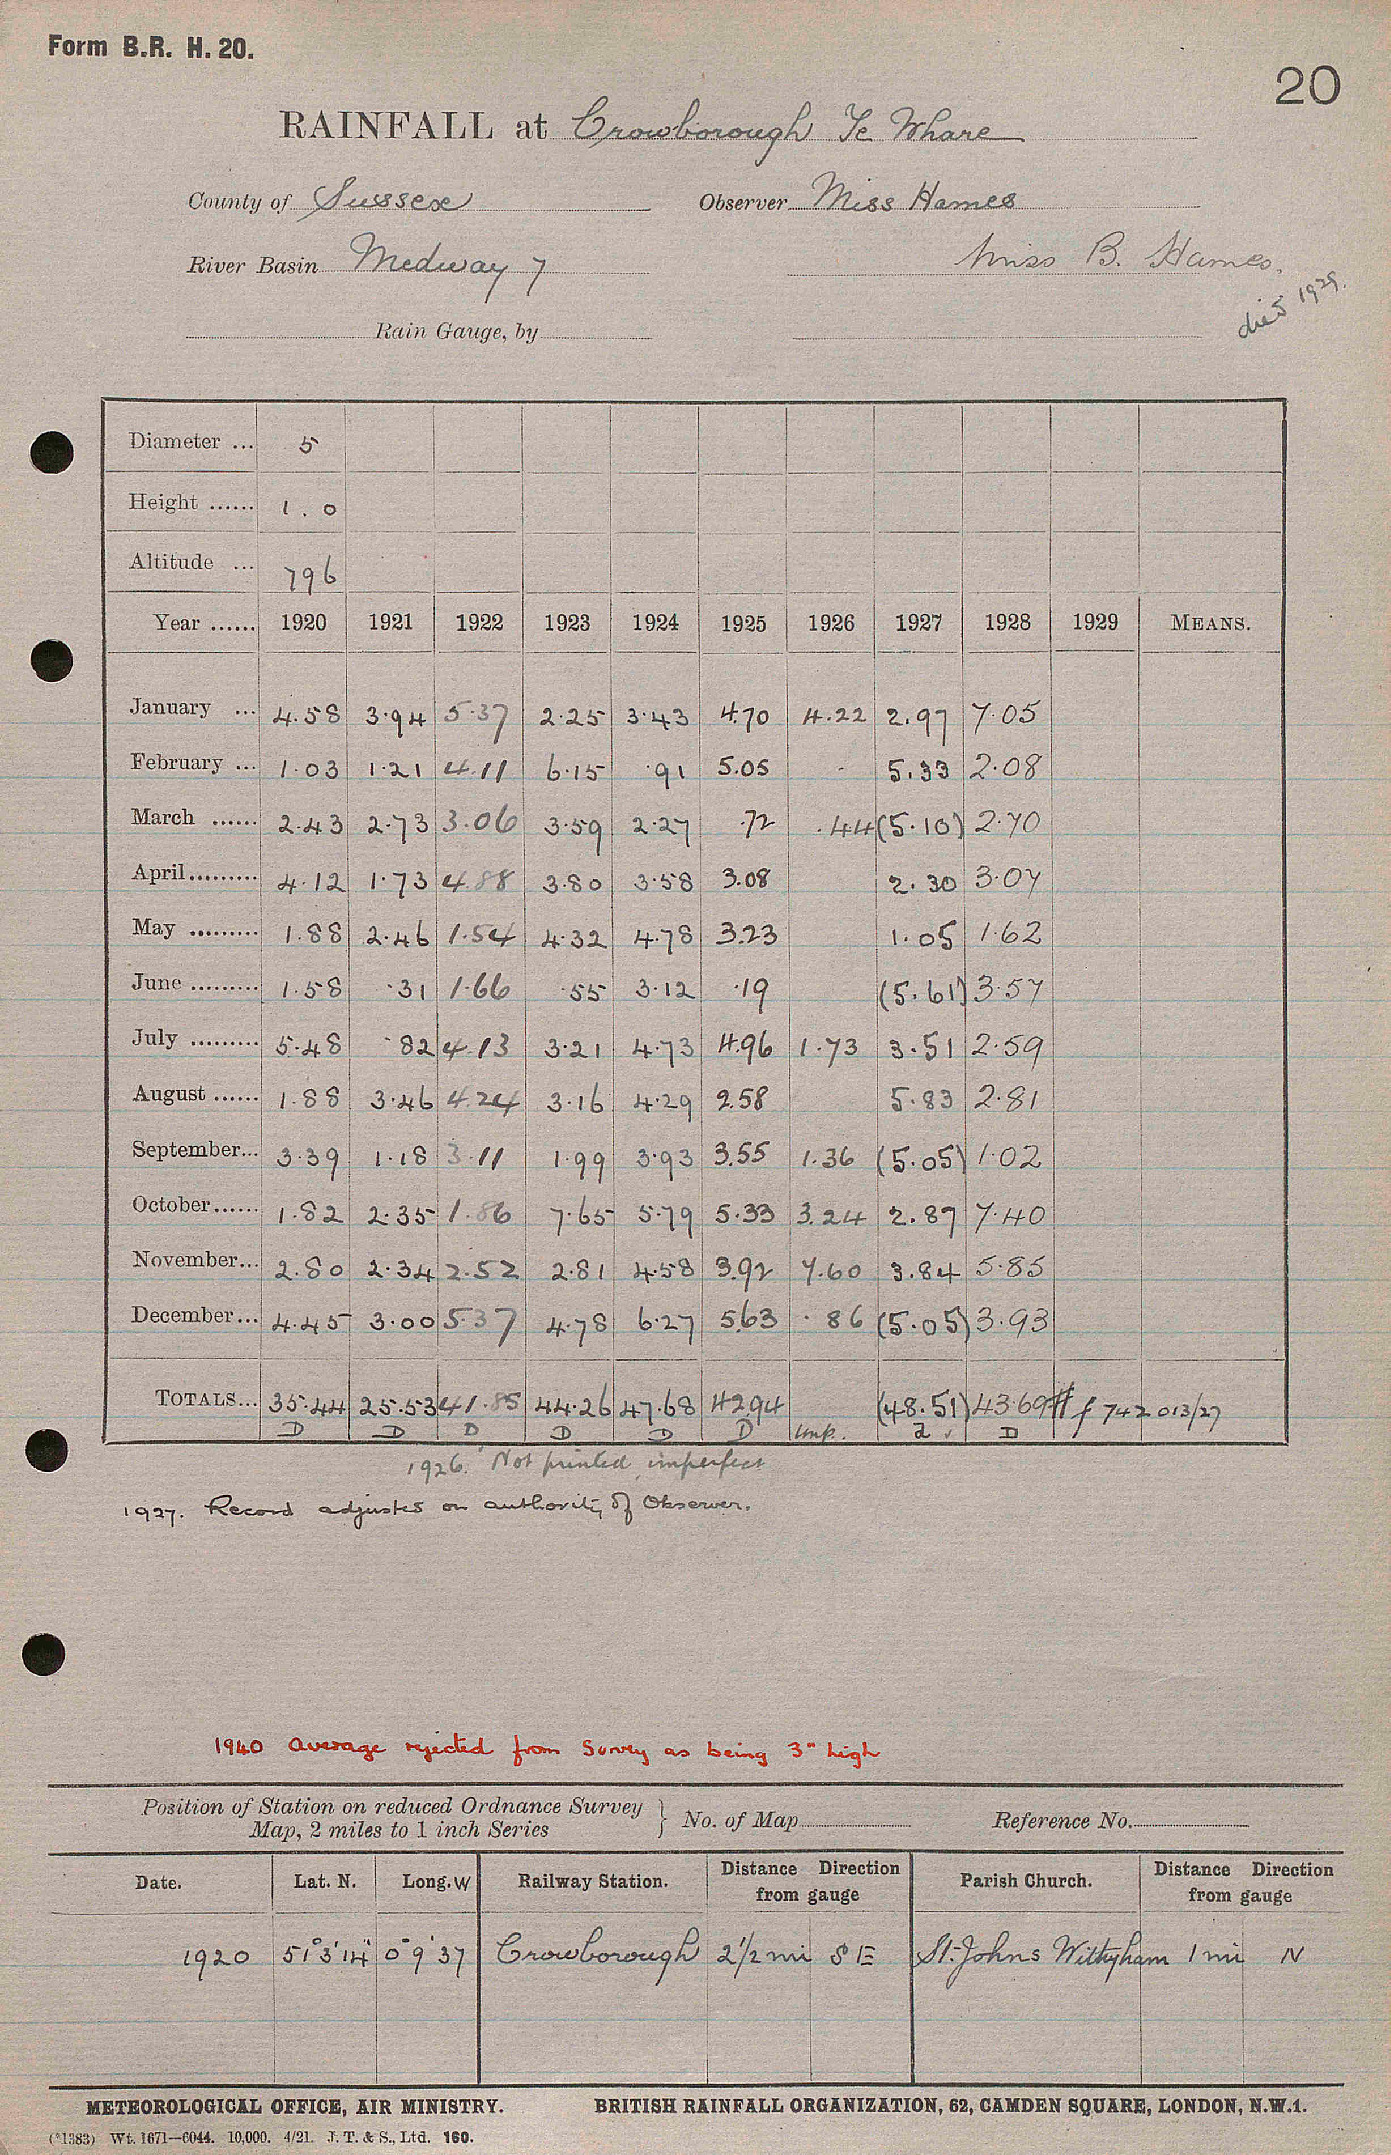 Form B.R. H. 20.
20
RAINFALL at Crowborough Te Whare
County of Sussex Observer Miss Hames
River Basin Medway 7 Miss B. Hames.
died 1929.
Rain Gauge, by
Diameter ... 5
Height ...... 1.0
Altitude ... 796
Year ...... 1920 1921 1922 1923 1924 1925 1926 1927 1928 1929 MEANS.
January ... 4.58 3.94 5.37 2.25 3.43 4.70 4.22 2.97 7.05
February ... 1.03 1.21 4.11 6.15 .91 5.05 - 5.33 2.08
March ...... 2.43 2.73 3.06 3.59 2.27 .72 .44 (5.10) 2.70
April ......... 4.12 1.73 4.88 3.80 3.58 3.08 2.30 3.07
May ......... 1.88 2.46 1.54 4.32 4.78 3.23 1.05 1.62
June ......... 1.58 .31 1.66 .55 3.12 .19 (5.61) 3.57
July ......... 5.48 .82 4.13 3.21 4.73 4.96 1.73 3.51 2.59
August ...... 1.88 3.46 4.24 3.16 4.29 2.58 5.83 2.81
September... 3.39 1.18 3.11 1.99 3.93 3.55 1.36 (5.05) 1.02
October...... 1.82 2.35 1.86 7.65 5.79 5.33 3.24 2.87 7.40
November... 2.80 2.34 2.52 2.81 4.58 3.92 7.60 3.84 5.85
December... 4.45 3.00 5.37 4.78 6.27 5.63 .86 (5.05) 3.93
TOTALS... 35.44 25.53 41.85 44.26 47.68 42.94 (48.51) 43.69 # f 742013/27
D D D D D D Imp. D
1926. Not printed, imperfect
1927. Record adjusted on authority of Observer.
1940 Average rejected from Survey as being 3" high
Position of Station on reduced Ordnance Survey
Map, 2 miles to 1 inch Series } No. of Map Reference No.
Date. Lat. N. Long. W Railway Station. Distance Direction from gauge Parish Church. Distance Direction from gauge
1920 51°3'14" 0°9'37 Crowborough 2 1/2 mi SE St. Johns Withyham 1 mi N
METEOROLOGICAL OFFICE, AIR MINISTRY. BRITISH RAINFALL ORGANIZATION, 62, CAMDEN SQUARE, LONDON, N.W.1.
(*1383) Wt. 1671—6044. 10,000. 4/21. J. T. & S., Ltd. 160.